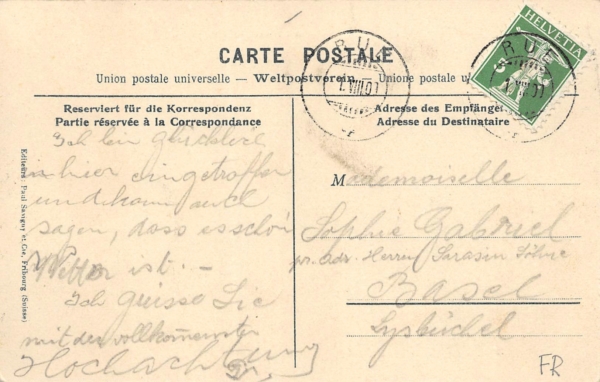 CARTE POSTALE
Union postale universelle. — Weltpostverein. — Unione postale u
Reserviert für die Korrespondenz
Partie réservée à la Correspondance
Adresse des Empfänge
Adresse du Destinataire
HELVETIA
5
RUE
1.VIII.0
RUE
1.VIII.0
Editeurs: Paul Savigny et Cie, Fribourg (Suisse)
Ich bin glücklich
hier eingetroffen
und kann auch
sagen, dass es schön
Wetter ist. —
Ich grüsse Sie
mit der vollkommenste
Hochachtung
Mademoiselle
Sophie Gabriel
pr. Adr. Herrn Sarasin Söhne
Basel
Lysbüchel
FR